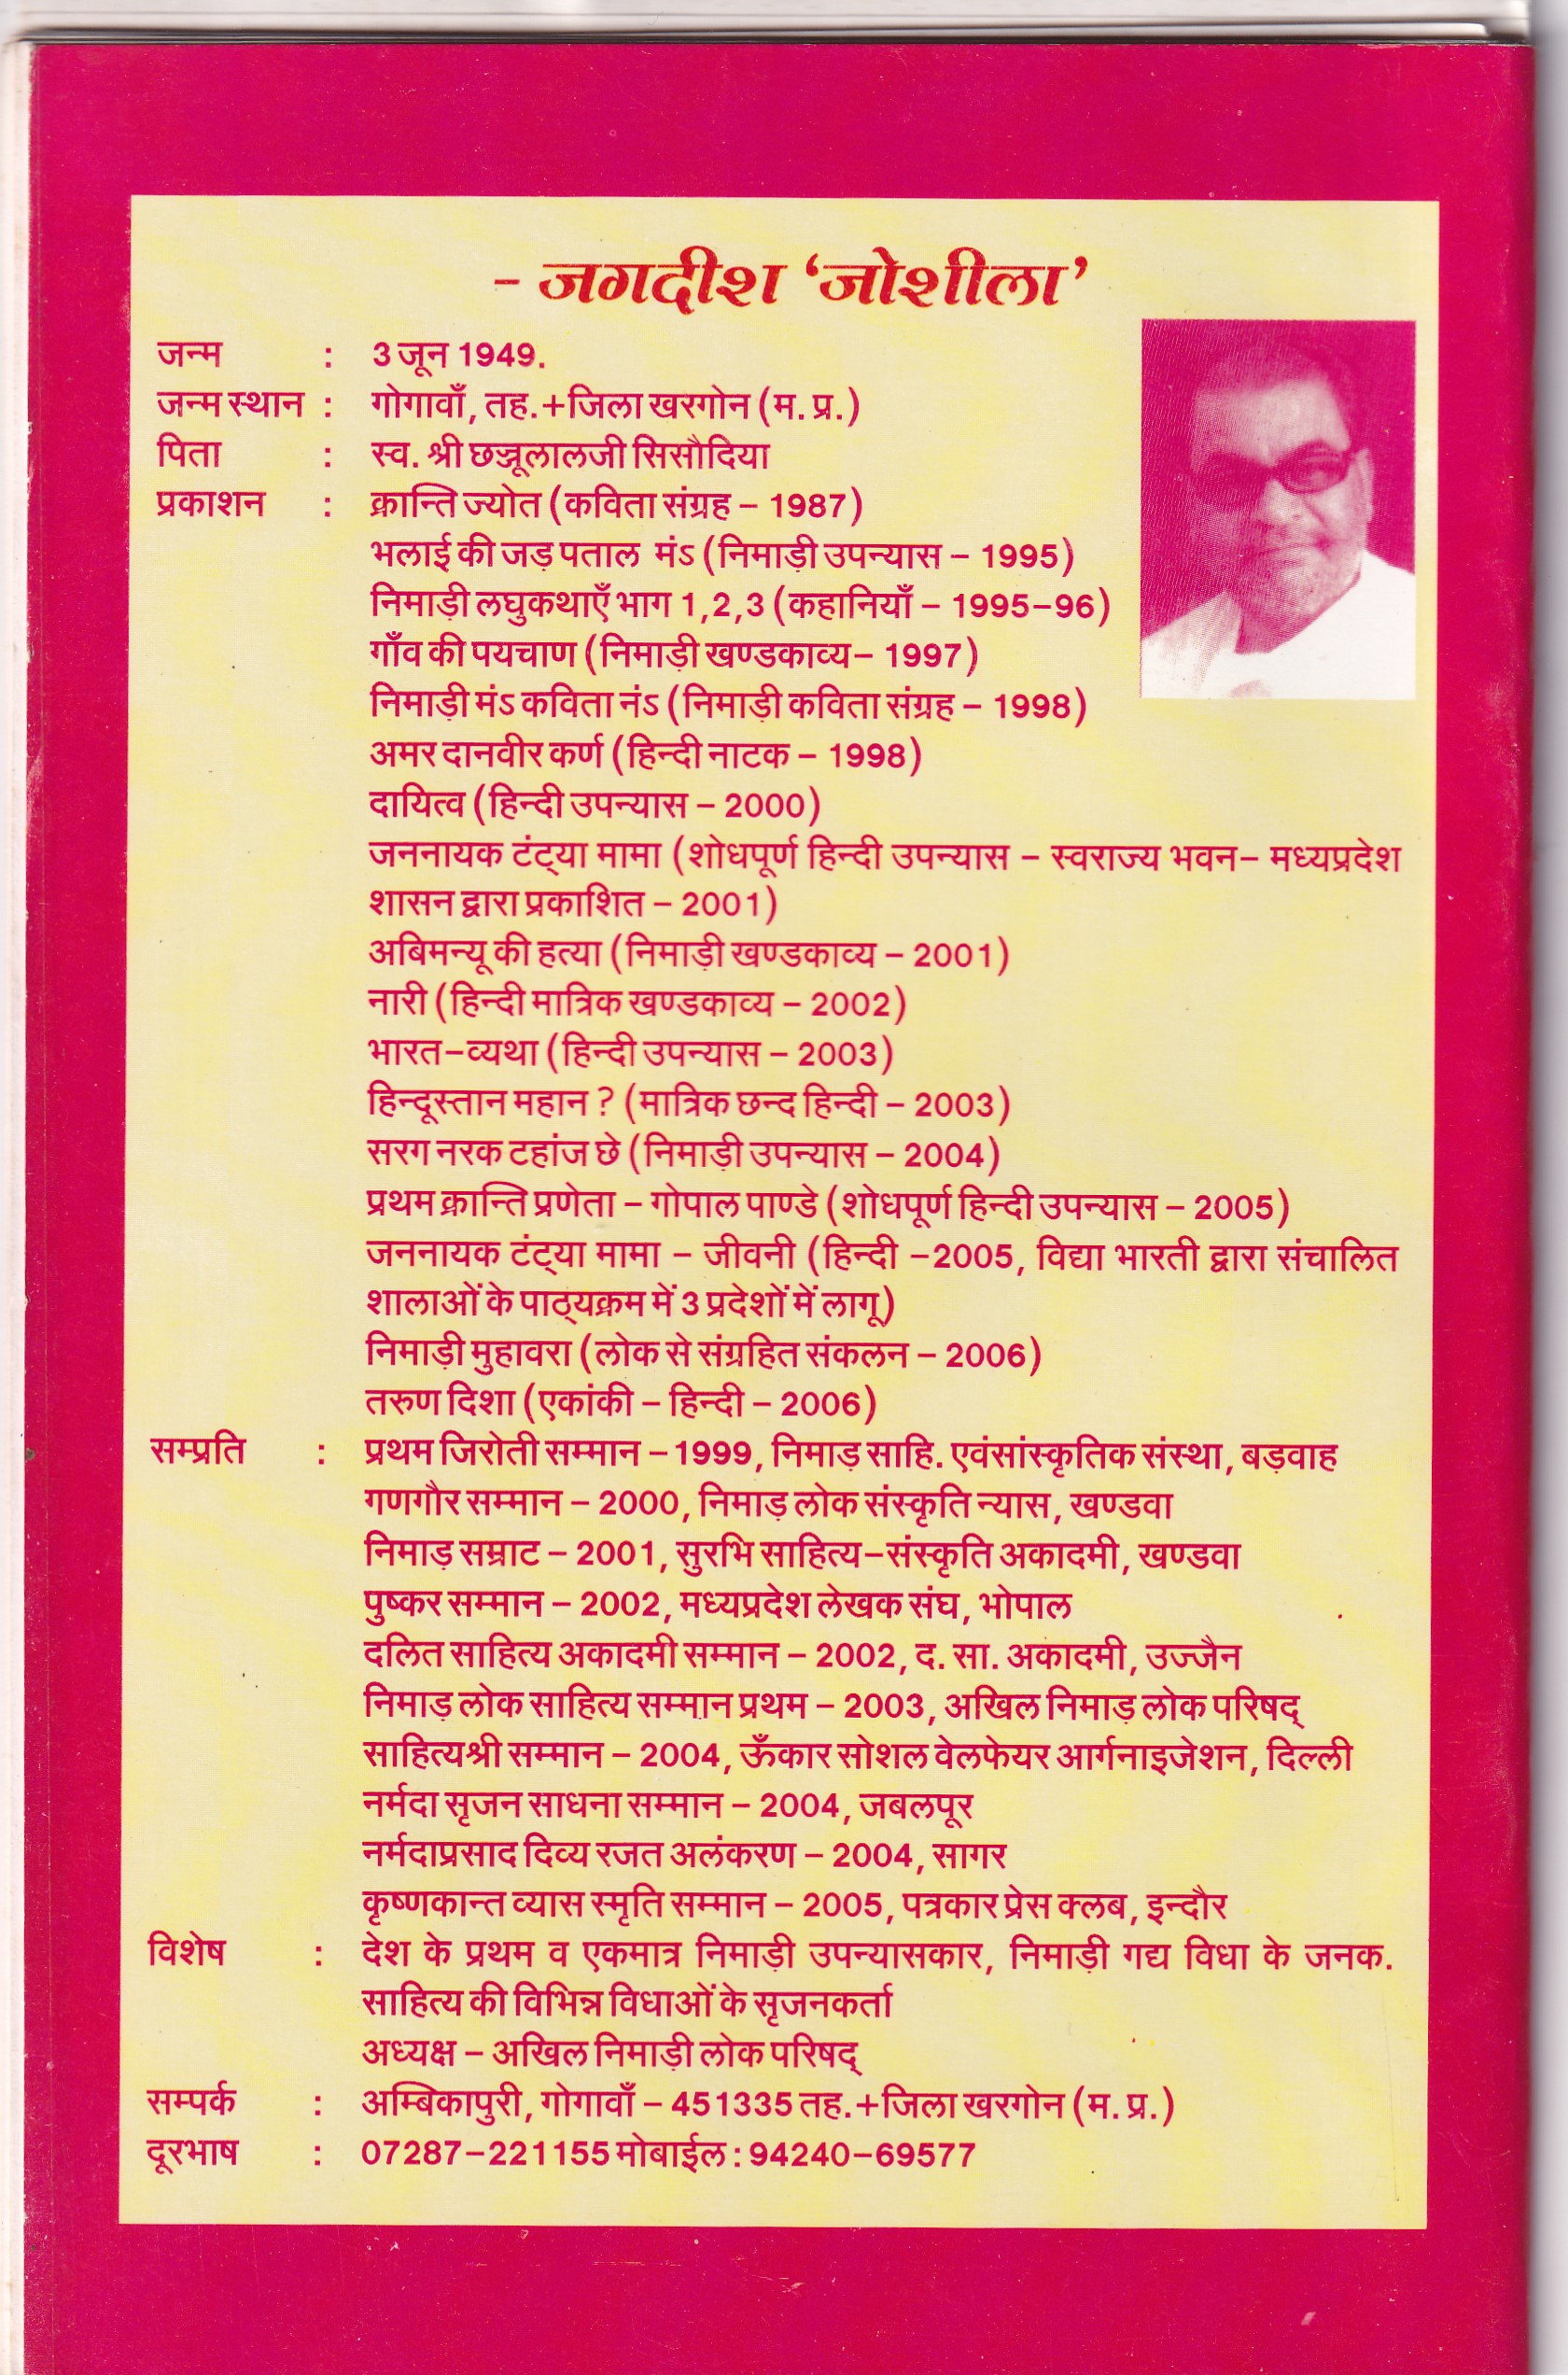 - जगदीश ‘जोशीला’
जन्म : 3 जून 1949.
जन्म स्थान : गोगावाँ, तह.+जिला खरगोन (म. प्र.)
पिता : स्व. श्री छज्जूलालजी सिसौदिया
प्रकाशन : क्रान्ति ज्योत (कविता संग्रह – 1987)
भलाई की जड़ पताल मंऽ (निमाड़ी उपन्यास – 1995)
निमाड़ी लघुकथाएँ भाग 1,2,3 (कहानियाँ – 1995–96)
गाँव की पयचाण (निमाड़ी खण्डकाव्य– 1997)
निमाड़ी मंऽ कविता नंऽ (निमाड़ी कविता संग्रह – 1998)
अमर दानवीर कर्ण (हिन्दी नाटक – 1998)
दायित्व (हिन्दी उपन्यास – 2000)
जननायक टंट्या मामा (शोधपूर्ण हिन्दी उपन्यास – स्वराज्य भवन– मध्यप्रदेश
शासन द्वारा प्रकाशित – 2001)
अबिमन्यू की हत्या (निमाड़ी खण्डकाव्य – 2001)
नारी (हिन्दी मात्रिक खण्डकाव्य – 2002)
भारत–व्यथा (हिन्दी उपन्यास – 2003)
हिन्दूस्तान महान ? (मात्रिक छन्द हिन्दी – 2003)
सरग नरक टहांज छे (निमाड़ी उपन्यास – 2004)
प्रथम क्रान्ति प्रणेता – गोपाल पाण्डे (शोधपूर्ण हिन्दी उपन्यास – 2005)
जननायक टंट्या मामा – जीवनी (हिन्दी –2005, विद्या भारती द्वारा संचालित
शालाओं के पाठ्यक्रम में 3 प्रदेशों में लागू)
निमाड़ी मुहावरा (लोक से संग्रहित संकलन – 2006)
तरुण दिशा (एकांकी – हिन्दी – 2006)
सम्प्रति : प्रथम जिरोती सम्मान – 1999, निमाड़ साहि. एवंसांस्कृतिक संस्था, बड़वाह
गणगौर सम्मान – 2000, निमाड़ लोक संस्कृति न्यास, खण्डवा
निमाड़ सम्राट – 2001, सुरभि साहित्य–संस्कृति अकादमी, खण्डवा
पुष्कर सम्मान – 2002, मध्यप्रदेश लेखक संघ, भोपाल
दलित साहित्य अकादमी सम्मान – 2002, द. सा. अकादमी, उज्जैन
निमाड़ लोक साहित्य सम्मान प्रथम – 2003, अखिल निमाड़ लोक परिषद्
साहित्यश्री सम्मान – 2004, ऊँकार सोशल वेलफेयर आर्गनाइजेशन, दिल्ली
नर्मदा सृजन साधना सम्मान – 2004, जबलपूर
नर्मदाप्रसाद दिव्य रजत अलंकरण – 2004, सागर
कृष्णकान्त व्यास स्मृति सम्मान – 2005, पत्रकार प्रेस क्लब, इन्दौर
विशेष : देश के प्रथम व एकमात्र निमाड़ी उपन्यासकार, निमाड़ी गद्य विधा के जनक.
साहित्य की विभिन्न विधाओं के सृजनकर्ता
अध्यक्ष – अखिल निमाड़ी लोक परिषद्
सम्पर्क : अम्बिकापुरी, गोगावाँ – 451335 तह.+जिला खरगोन (म. प्र.)
दूरभाष : 07287–221155 मोबाईल : 94240–69577